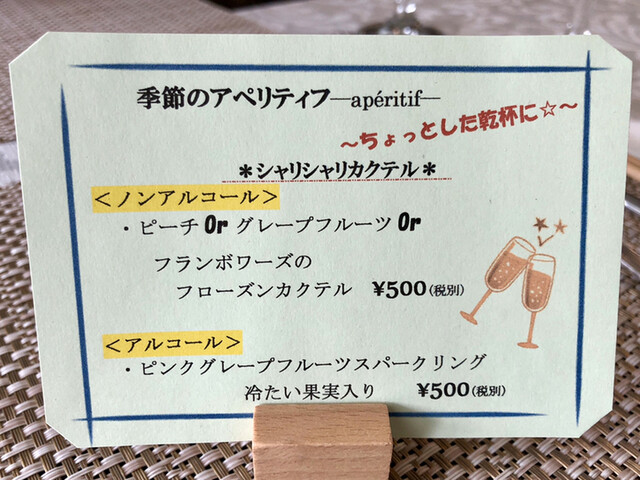 季節のアペリティフ―apéritif―
～ちょっとした乾杯に☆～
＊シャリシャリカクテル＊
＜ノンアルコール＞
・ピーチ Or グレープフルーツ Or
フランボワーズの
フローズンカクテル ¥500(税別)
＜アルコール＞
・ピンクグレープフルーツスパークリング
冷たい果実入り ¥500(税別)